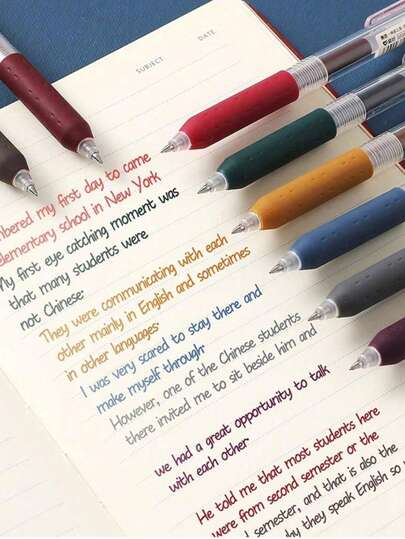 SUBJECT DATE
my first day to came
elementary school in New York
My first eye catching moment was
that many students were
not Chinese.
They were communicating with each
other mainly in English and sometimes
in other languages.
I was very scared to stay there and
make myself through.
However, one of the Chinese students
there invited me to sit beside him and
we had a great opportunity to talk
with each other
He told me that most students here
were from second semester or the
semester, and that is also the
they speak English so